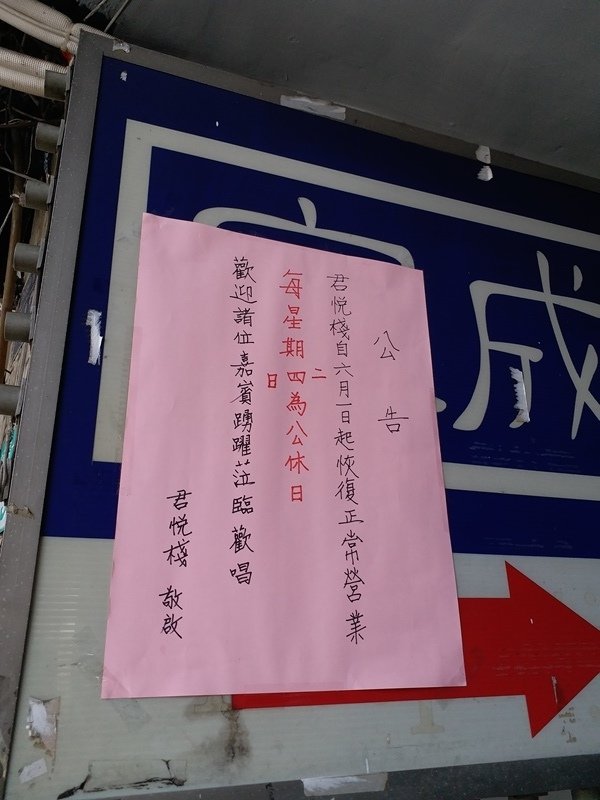 公告
君悦棧自六月一日起恢復正常營業
二
每星期四為公休日
日
歡迎諸位嘉賓踴躍蒞臨歡唱
君悦棧 敬啟
成